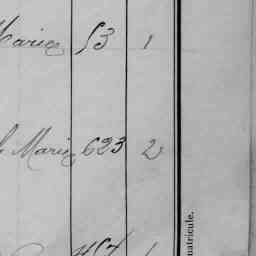 Marie 53 1
Marie 623 2
matricule.